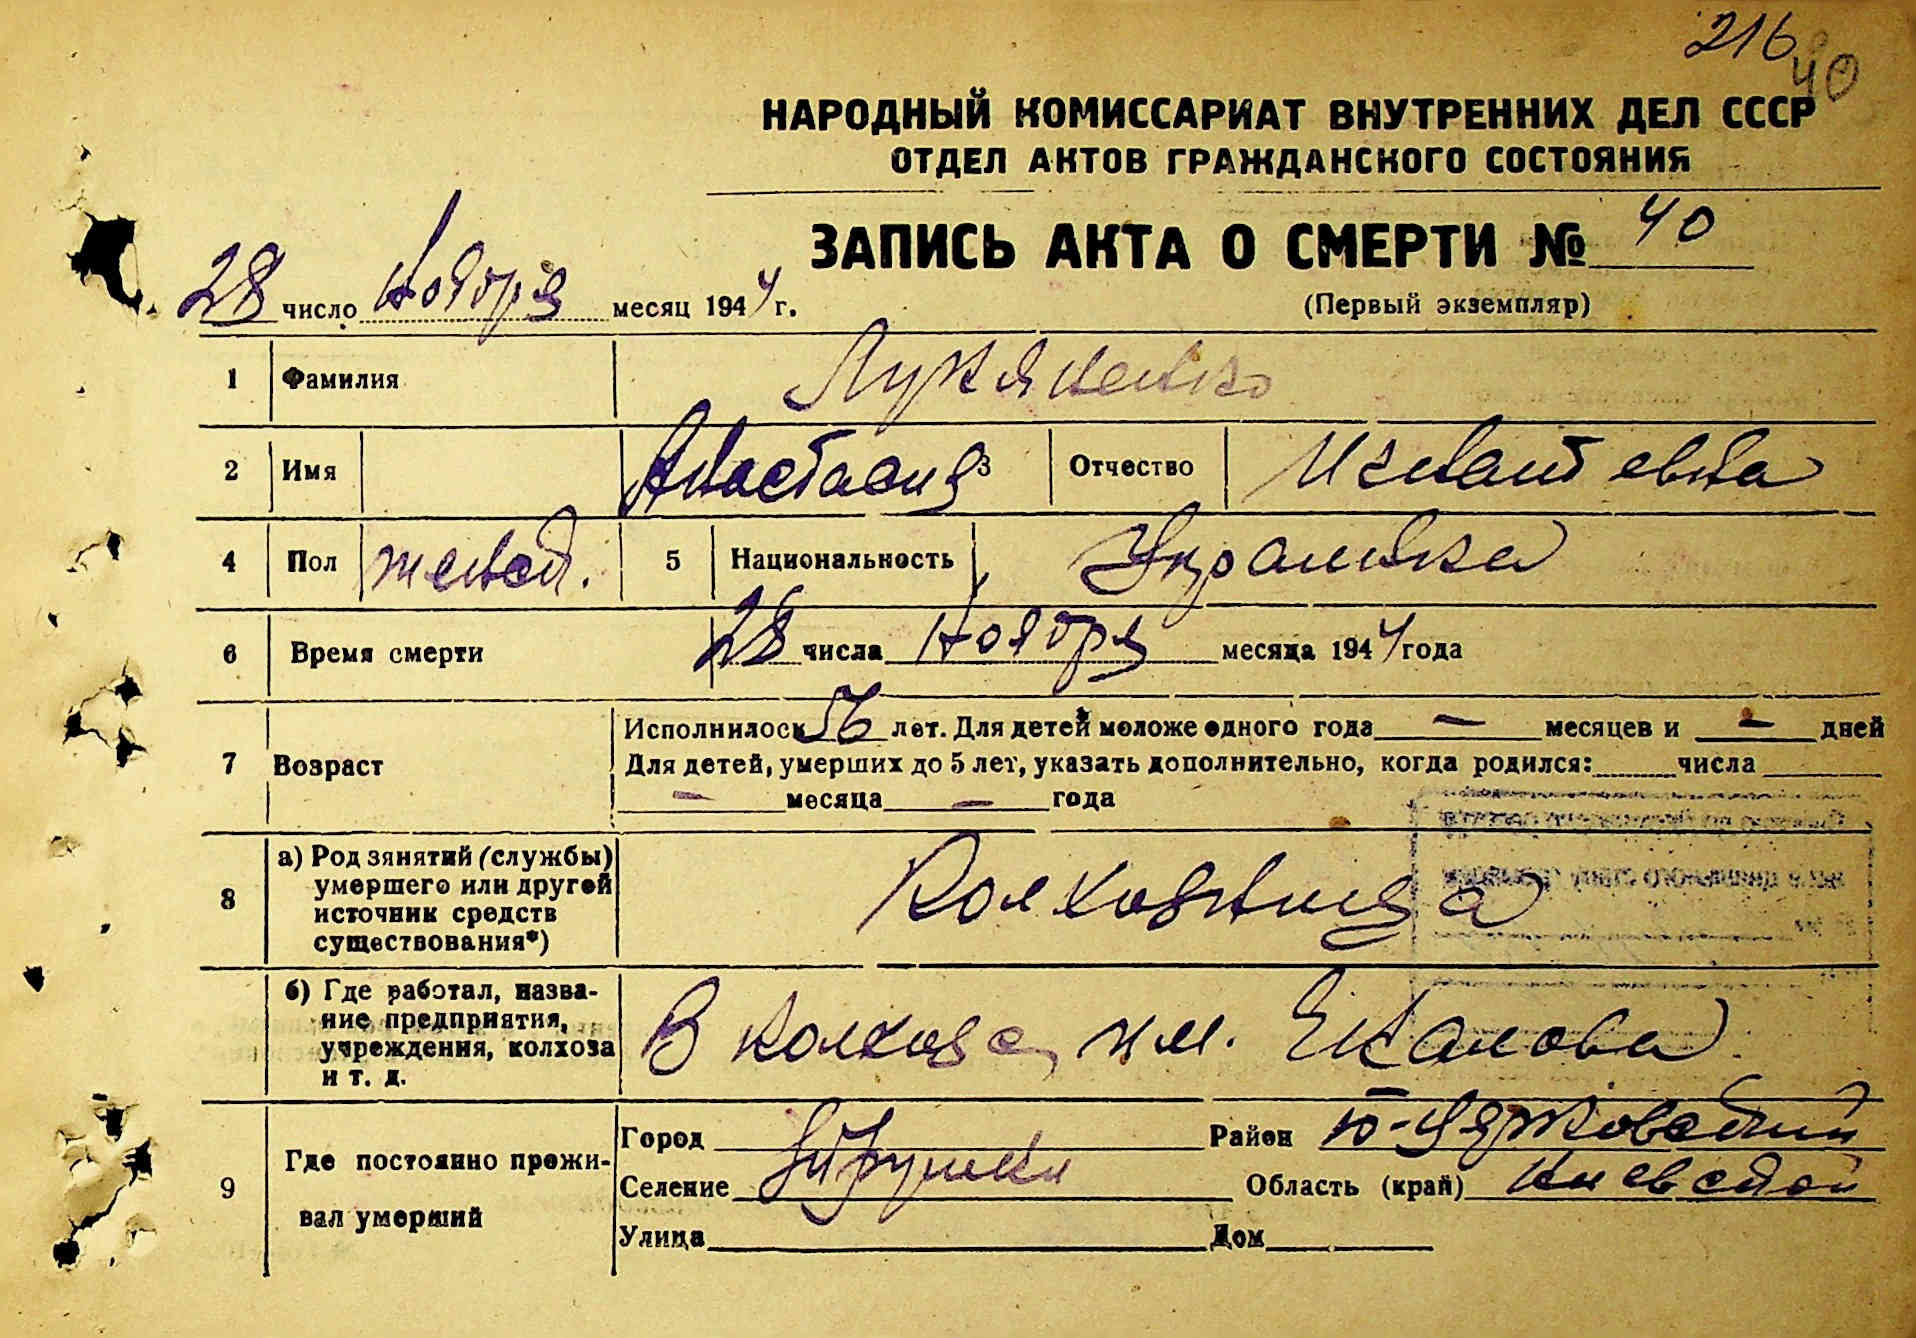 216
40
НАРОДНЫЙ КОМИССАРИАТ ВНУТРЕННИХ ДЕЛ СССР
ОТДЕЛ АКТОВ ГРАЖДАНСКОГО СОСТОЯНИЯ
ЗАПИСЬ АКТА О СМЕРТИ № 40
28 число Ноября месяц 1944 г.
(Первый экземпляр)
1 Фамилия Лукяненко
2 Имя Анастасия 3 Отчество Игнатевна
4 Пол женск. 5 Национальность Украинка
6 Время смерти 28 числа Ноября месяца 1944 года
7 Возраст
Исполнилось 56 лет. Для детей моложе одного года — месяцев и — дней
Для детей, умерших до 5 лет, указать дополнительно, когда родился: числа
— месяца — года
8 а) Род занятий (службы)
умершего или другой
источник средств
существования*)
Колхозница
б) Где работал, назва-
ние предприятия,
учреждения, колхоза
и т. д.
В колхозе им. Чкалова
9 Где постоянно прожи-
вал умерший
Город Район Б-Церковский
Селение Область (край) Киевской
Улица Дом